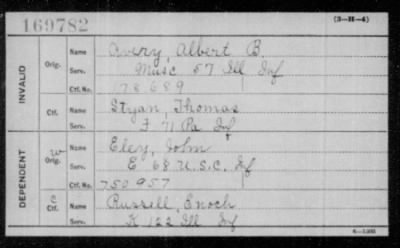 169782
(3—H—4)
INVALID
Orig.
Name Avery, Albert B.
Serv. Musc. 57 Ill Inf
Ctf. No. 178689
Ctf.
Name Styan, Thomas
Serv. F 71 Pa Inf
DEPENDENT
W
Orig.
Name Eley, John
Serv. E 68 U.S.C. Inf
Ctf. No. 750957
C
Ctf.
Name Russell, Enoch
Serv. K 122 Ill Inf